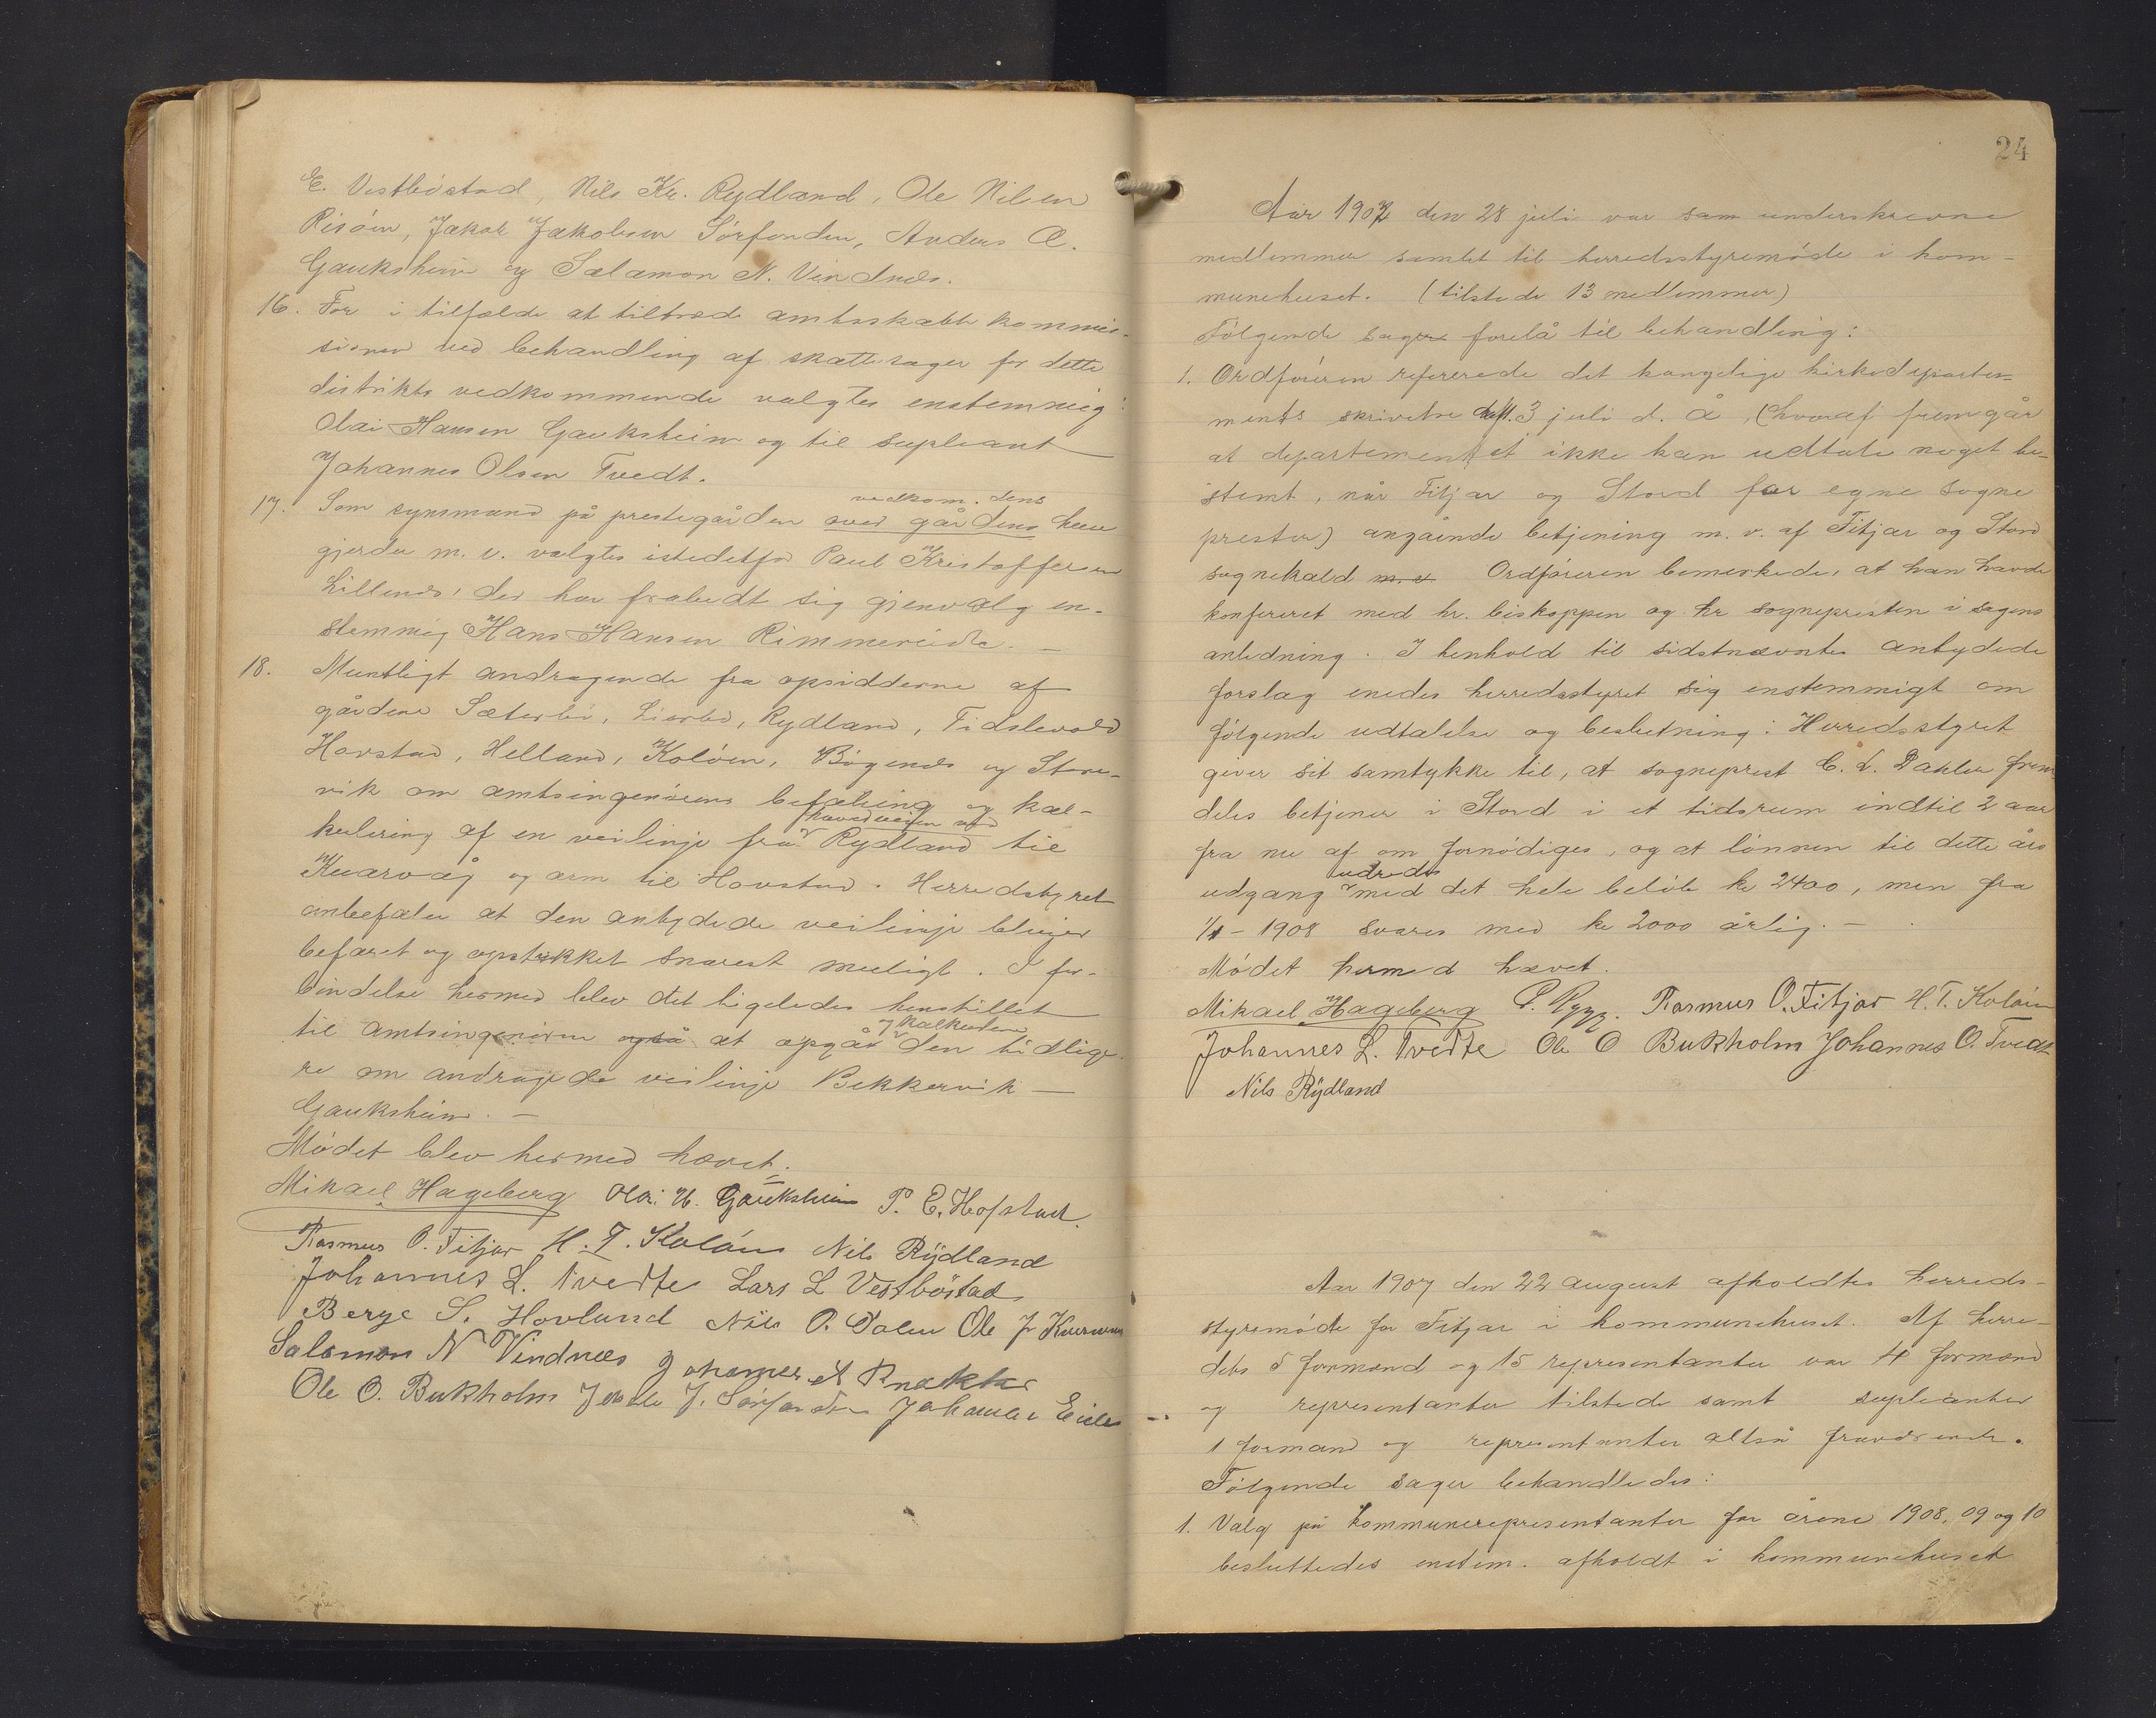 E. Vestböstad, Nils Kr. Rydland, Ole Nilsen
Risöen, Jakob Jakobsen Sörfonden, Anders O.
Gauksheim og Salamon N. Vindnes.
16. For i tilfælde at tiltræde amtsskattekommis-
sionen ved behandling af skattesager for dette
distrikts vedkommende valgtes enstemmig:
Olai Hansen Gauksheim og til supleant
Johannes Olsen Tvedt.
17. Som synsmand på prestegården over gårdens huse
vedkom. dens
gjerder m. v. valgtes istedetfor Paul Kristoffersen
Lillenes, der har frabedt sig gjenvalg en-
stemmig Hans Hansen Rimmereide. —
18. Muntligt andragende fra opsidderne af
gårdene Sæterbö, Lierbö, Rydland, Tidslevold
Havstad, Helland, Kolöen, Bögenes og Store-
vik om amtsingeniörens befaring og kal-
kulering af en veilinje fra Rydland til
hovedveien ved
Kuarvåg og arm til Hovstad. Herredstyret
anbefaler at den antydede veilinje bliver
befaret og opstukket snarest muligt. I for-
bindelse hermed blev det ligeledes henstillet
til amtsingeniören også at opgå den tidlige-
og kalkulere
re om andragede veilinje Bekkervik —
Gauksheim. —
Mödet blev hermed hævet.
Mikael Hageberg Olai H. Gauksheim P. E. Hofstad.
Rasmus O. Fitjar H. T. Kolöen Nils Rydland
Johannes L. Tvedte Lars L Vestböstad
Berge S. Hovland Nils O. Dalen Ole J
Salomon N Vindnes Johannes
Ole O. Bukholm J. Sörfonden Johannes
24
Aar 1907 den 28 juli var sam underskrevne
medlemmer samlet til herredsstyremöde i kom-
munehuset. (tilstede 13 medlemmer)
Fölgende sager forelå til behandling:
1. Ordföreren refererede det kongelige kirkedeparte-
ments skrivelse daft. 3 juli d. å, (hvoraf fremgår
at departementet ikke kan udtale noget be-
stemt, når Fitjar og Stord får egne sogne
prester) angående betjening m. v. af Fitjar og Stord
sognekald m. v. Ordföreren bemerkede, at han havde
konfereret med hr. biskoppen og hr sognepresten i sagens
anledning. I henhold til sidstnævntes antydede
forslag enedes herredsstyret sig enstemmigt om
fölgende udtalelse og beslutning: Herredsstyret
giver sit samtykke til, at sogneprest C. L. Dahler frem
deles betjener i Stord i et tidsrum indtil 2 aar
fra nu af om fornödiges, og at lönnen til dette års
udgang med det hele belöb kr 2400, men fra
udredes
1/1 - 1908 svares med kr 2000 årlig. —
Mödet hermed hævet.
Mikael Hageberg P. Rygg. Rasmus O. Fitjar H. T. Kolöen
Johannes L. Tvedte Ole O Bukholm Johannes O. Tvedt
Nils Rydland
Aar 1907 den 22 august afholdtes herreds-
styremöde for Fitjar i kommunehuset. Af herre-
dets 5 formænd og 15 representanter var 4 formænd
og representanter tilstede samt supleanter
1 formand og representanter altså fraværende.
Fölgende sager behandledes:
1. Valg på kommunerepresentanter for årene 1908, 09 og 10
besluttedes enstem. afholdt i kommunehuset